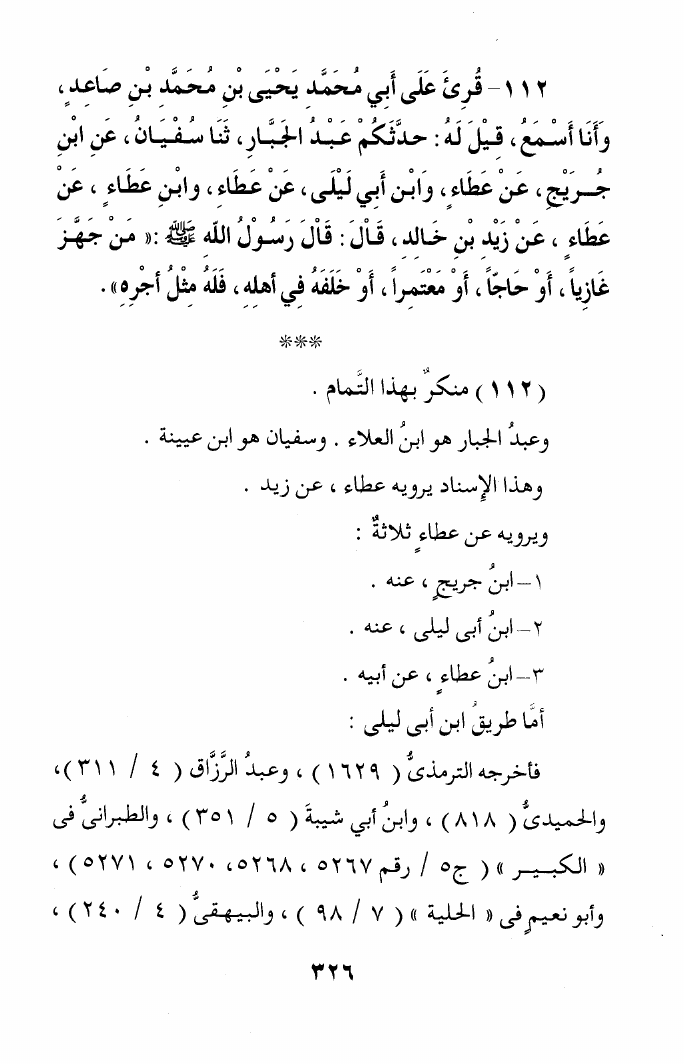 ١١٢- قُرِئَ عَلَى أَبِي مُحَمَّد يَحْيَى بْنِ مُحَمَّدِ بْنِ صَاعِدٍ،
وَأَنَا أَسْمَعُ، قِيْلَ لَهُ: حدَّثَكُمْ عَبْدُ الجَبَّارِ، ثَنَا سُفْيَانُ، عَنِ ابْنِ
جُرَيْجٍ، عَنْ عَطَاءٍ، وَابْن أَبي لَيْلَى، عَنْ عَطَاءٍ، وابْنِ عَطَاءٍ، عَنْ
عَطَاءٍ، عَنْ زَيْدِ بْنِ خَالِدٍ، قَالَ: قَالَ رَسُوْلُ اللَّه ﷺ: «مَنْ جَهَّزَ
غَازِياً، أَوْ حَاجّاً، أَوْ مَعْتَمِراً، أَوْ خَلَفَهُ فِي أهلِهِ، فَلَهُ مِثْلُ أجْرِهِ».
***
(١١٢) منكرٌ بهذا التَّمام.
وعبدُ الجبار هو ابنُ العلاء. وسفيان هو ابن عيينة.
وهذا الإسناد يرويه عطاء، عن زيد.
ويرويه عن عطاءٍ ثلاثةٌ:
١- ابنُ جريجٍ، عنه.
٢- ابنُ أبى ليلى، عنه.
٣- ابنُ عطاءٍ، عن أبيه.
أمَّا طريقُ ابن أبى ليلى:
فأخرجه الترمذىُّ (١٦٢٩)، وعبدُ الرَّزَّاق (٤ / ٣١١)،
والحميدىُّ (٨١٨)، وابنُ أبي شيبةَ (٥ / ٣٥١)، والطبرانىُّ فى
«الكبير» (ج٥ / رقم ٥٢٦٧، ٥٢٦٨، ٥٢٧٠، ٥٢٧١)،
وأبو نعيمٍ فى «الحلية» (٧ / ٩٨)، والبيهقىُّ (٤ / ٢٤٠)،
٣٢٦